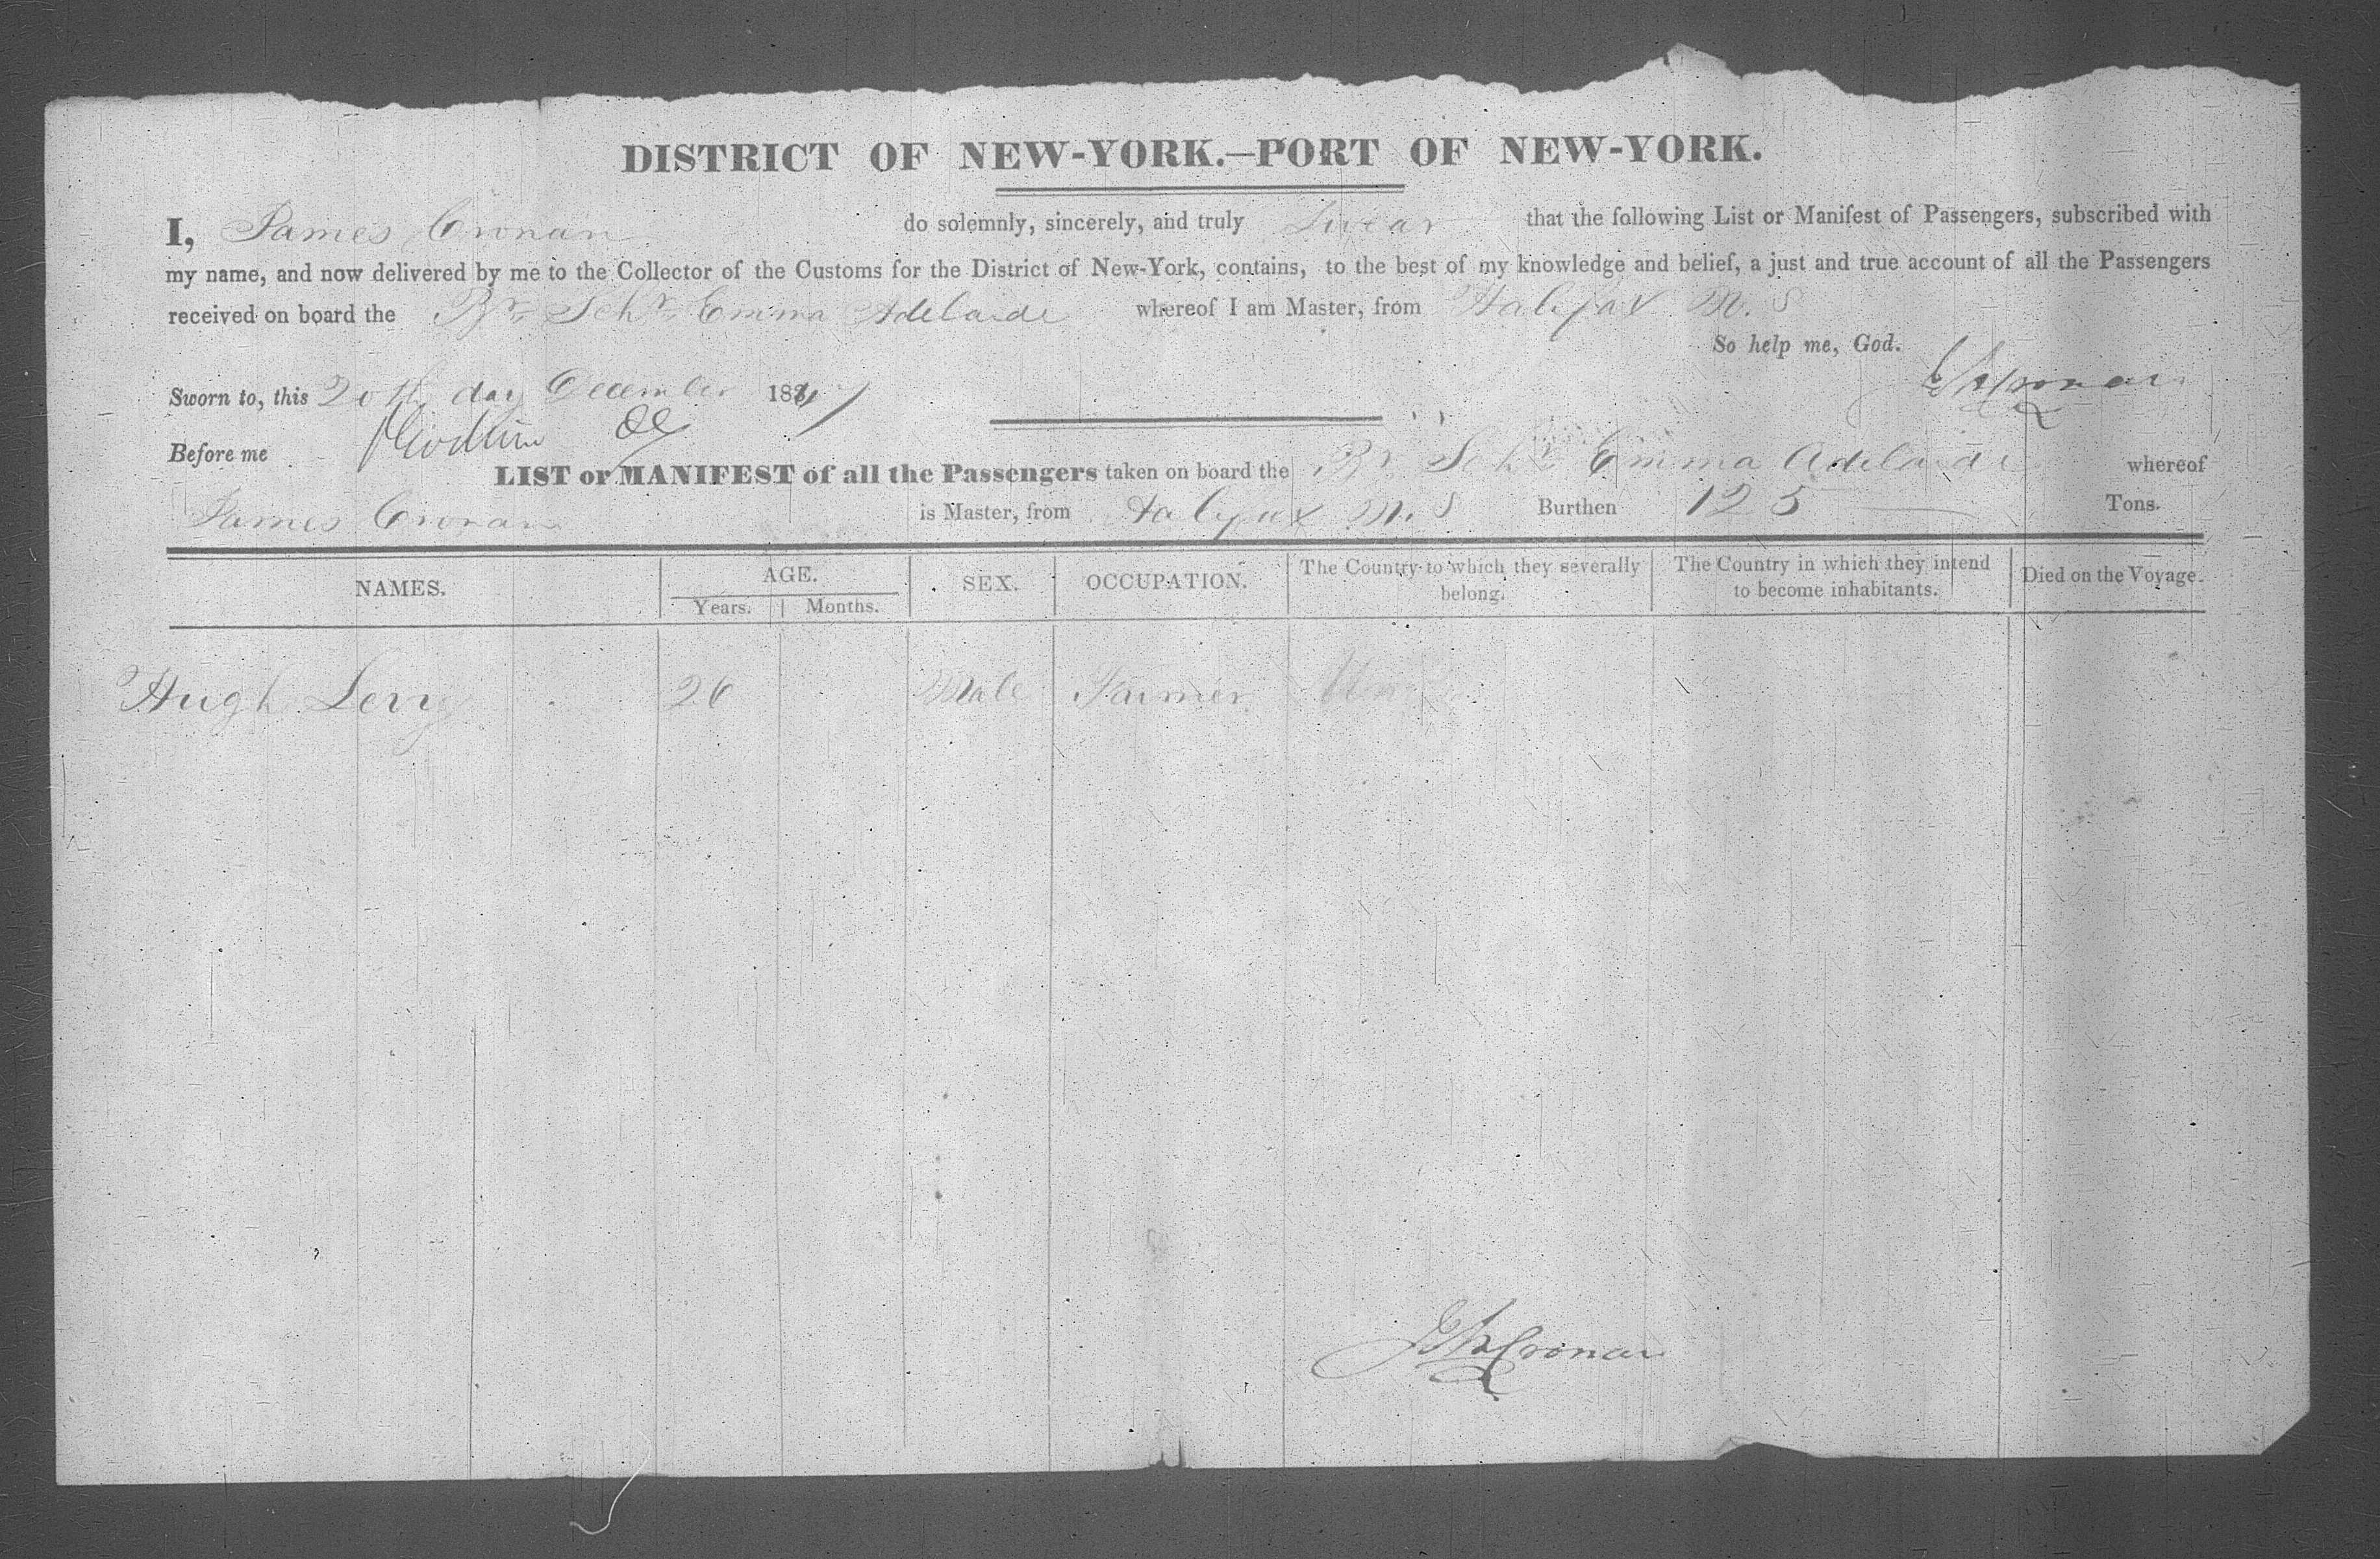 DISTRICT OF NEW-YORK.—PORT OF NEW-YORK.
I, James Cronan do solemnly, sincerely, and truly Swear that the following List or Manifest of Passengers, subscribed with
my name, and now delivered by me to the Collector of the Customs for the District of New-York, contains, to the best of my knowledge and belief, a just and true account of all the Passengers
received on board the Br Schr Emma Adelaide whereof I am Master, from Halifax N. S
So help me, God.
Sworn to, this 20th day December 1847
Cronan
Before me
LIST or MANIFEST of all the Passengers taken on board the Br Schr Emma Adelaide whereof
James Cronan is Master, from Halifax N. S Burthen 125 Tons.
NAMES. AGE. SEX. OCCUPATION. The Country to which they severally belong. The Country in which they intend to become inhabitants. Died on the Voyage.
Years. Months.
Hugh 26 Male Farmer
Cronan